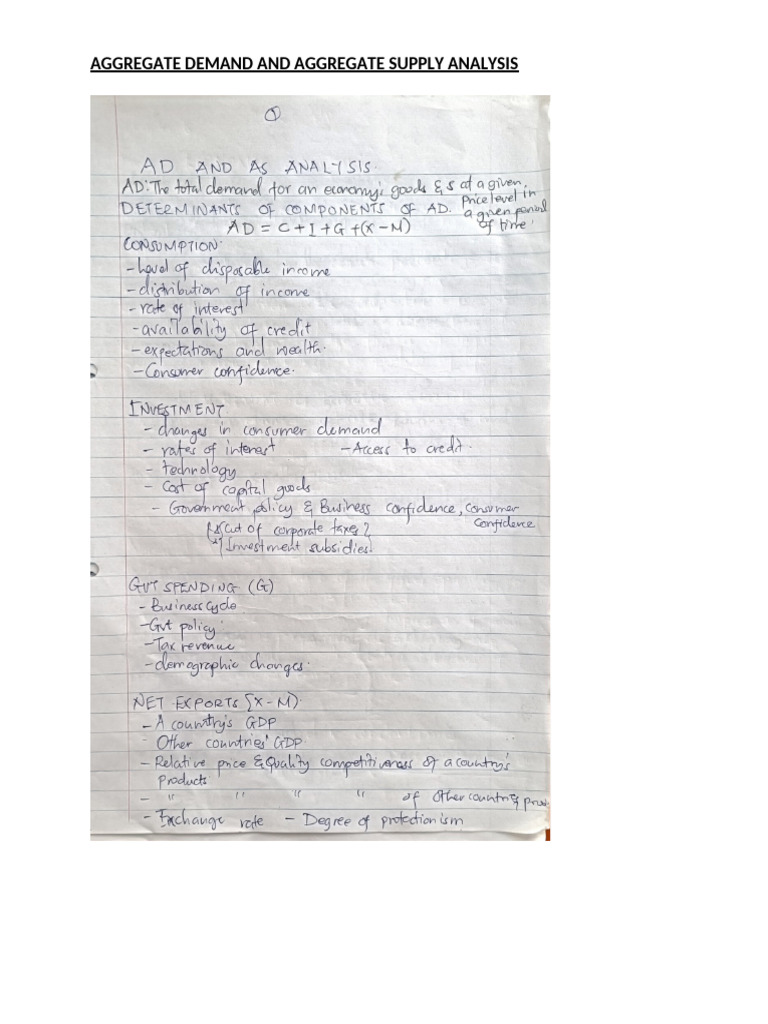 AGGREGATE DEMAND AND AGGREGATE SUPPLY ANALYSIS
①
AD AND AS ANALYSIS.
AD: The total demand for an economy's goods & s at a given price level in a given period of time.
DETERMINANTS OF COMPONENTS OF AD.
AD = C + I + G + (X - M)
CONSUMPTION.
- Level of disposable income
- distribution of income
- rate of interest
- availability of credit
- expectations and wealth.
- Consumer confidence.
INVESTMENT
- changes in consumer demand
- rates of interest - Access to credit.
- technology
- Cost of capital goods
- Government policy & Business confidence, Consumer Confidence
Cut of corporate taxes
Investment subsidies
GVT SPENDING (G)
- Business Cycle
- Gvt policy
- Tax revenue
- demographic changes.
NET EXPORTS (X-M)
- A country's GDP
Other countries' GDP.
- Relative price & Quality competitiveness of a country's
products
- " " " " of other countries
- Exchange rate - Degree of protectionism